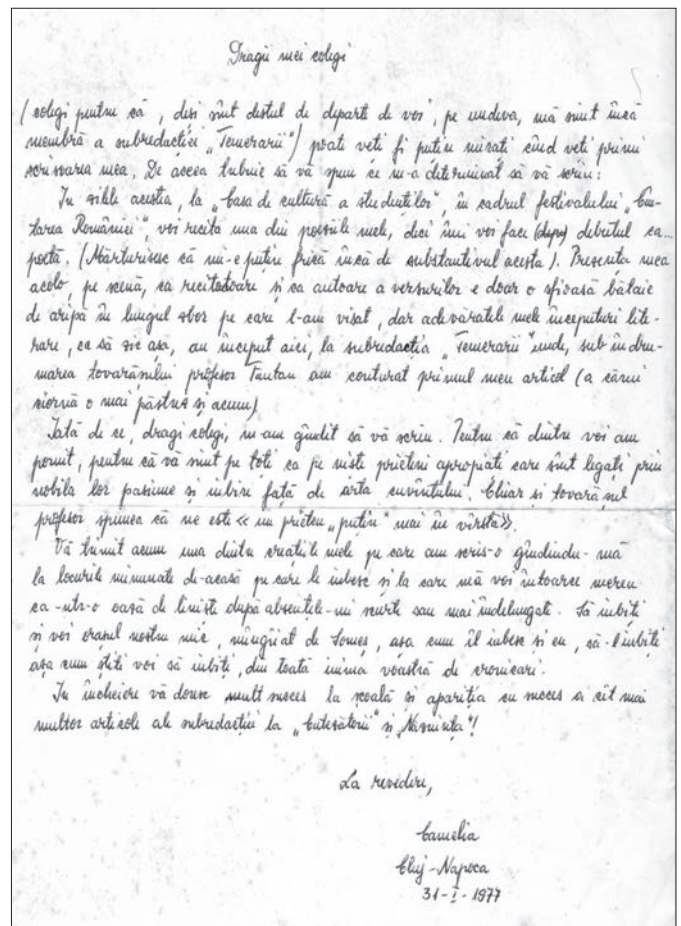 Dragii mei colegi
(colegi pentru că, deși sînt destul de departe de voi, pe undeva, mă simt încă
membră a subredacției „Temerarii") poate veți fi puțin mirați cînd veți primi
scrisoarea mea. De aceea trebuie să vă spun ce m-a determinat să vă scriu:
In zilele acestea, la „Casa de cultură a studenților", în cadrul festivalului „Cîn-
tarea României", voi recita una din poeziile mele, deci îmi voi face (după) debutul ca...
poetă. (Mărturisesc că mi-e puțin frică încă de substantivul acesta). Prezența mea
acolo, pe scenă, ca recitatoare și ca autoare a versurilor e doar o sfioasă bătaie
de aripă în lungul zbor pe care l-am visat, dar adevăratele mele începuturi lite-
rare, ca să zic așa, au început aici, la subredacția „Temerarii" unde, sub îndru-
marea tovarășului profesor Tăutan am conturat primul meu articol (a cărui
ciornă o mai păstrez și acum)
Iată de ce, dragi colegi, m-am gîndit să vă scriu. Pentru că dintre voi am
pornit, pentru că vă simt pe toți ca pe niște prieteni apropiați care sînt legați prin
nobila lor pasiune și iubire față de arta cuvîntului. Chiar și tovarășul
profesor spunea că ne este << un prieten „puțin" mai în vîrstă>>.
Vă trimit acum una dintre creațiile mele pe care am scris-o gîndindu-mă
la locurile minunate de-acasă pe care le iubesc și la care mă voi întoarce mereu
ca-ntr-o oază de liniște după absențele-mi scurte sau mai îndelungate. Să iubiți
și voi orașul nostru mic, mîngîiat de Someș, așa cum îl iubesc și eu, să-l iubiți
așa cum știți voi să iubiți, din toată inima voastră de cronicari.
In încheiere vă doresc mult succes la școală și apariția cu succes a cît mai
multor articole ale subredacției la „Cutezătorii" și „Năzuința"!
La revedere,
Camelia
Cluj-Napoca
31-I-1977